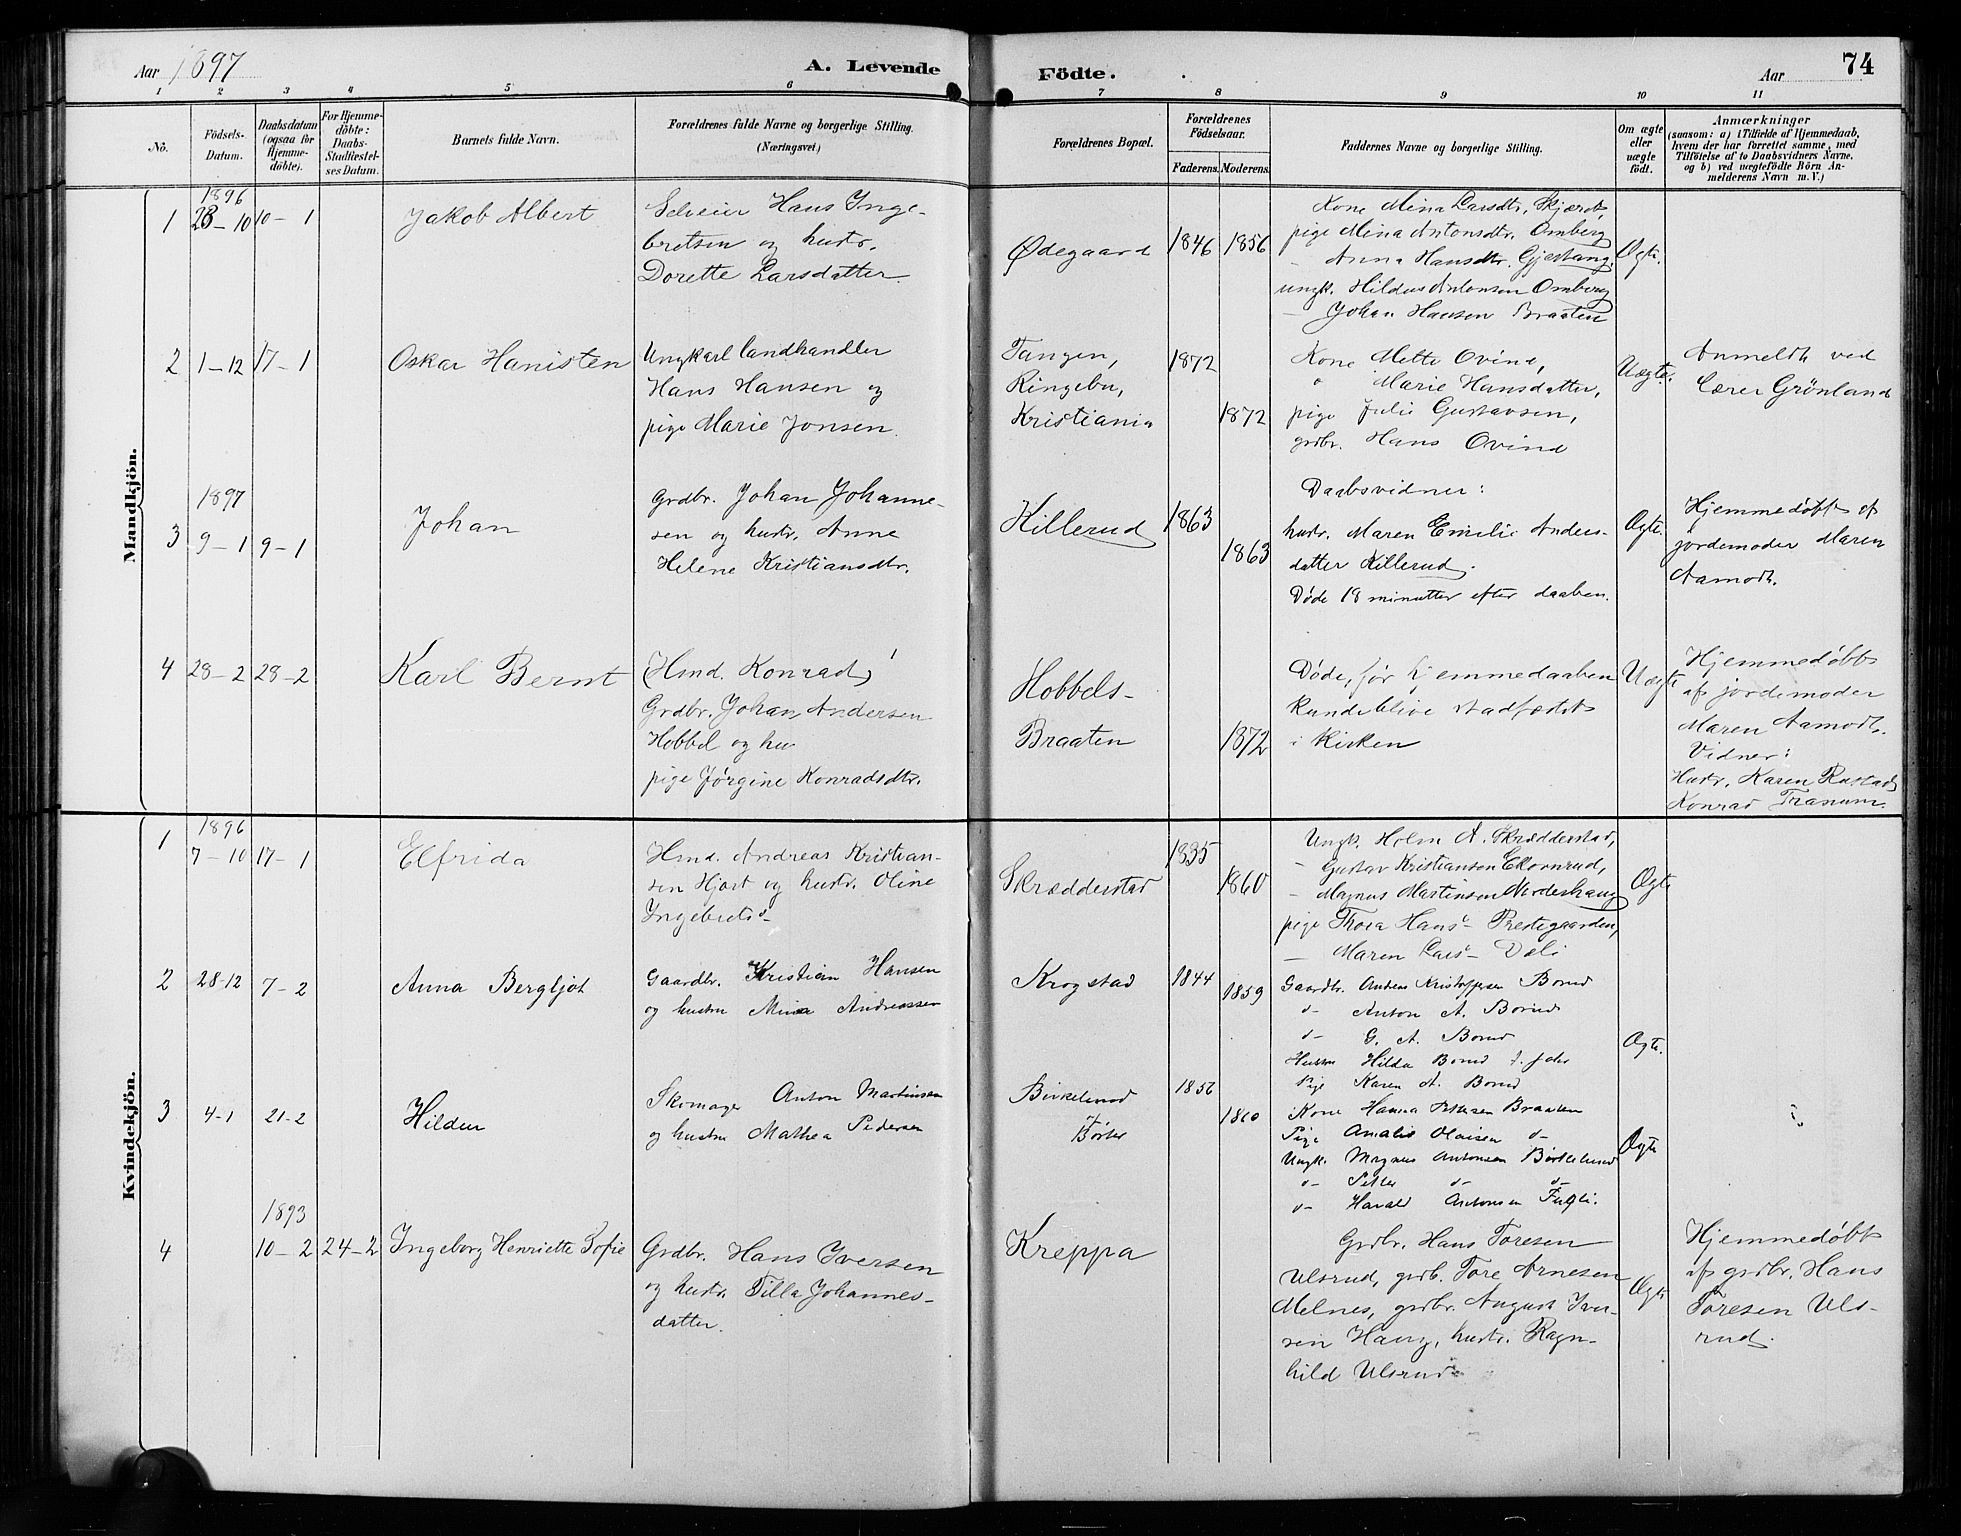 Aar 1897
A. Levende
Födte.
Aar
74
1 2 3 4 5 6 7 8 9 10 11
No.
Födsels-
Datum.
Daabsdatum
(ogsaa for
Hjemme-
döbte).
For Hjemme-
döbte:
Daabs-
Stadfæstel-
ses Datum.
Barnets fulde Navn.
Forældrenes fulde Navne og borgerlige Stilling.
(Næringsvei)
Forældrenes Bopæl.
Forældrenes
Födselsaar.
Faderens. Moderens.
Faddernes Navne og borgerlige Stilling.
Om ægte
eller
uægte
födt.
Anmærkninger
(saasom: a) i Tilfælde af Hjemmedaab,
hvem der har forrettet samme, med
Tilföielse af to Daabsvidners Navne,
og b) ved uægtefödte Börn An-
melderens Navn m. V.)
Mandkjön.
1896
1 28-10 10-1
Jakob Albert
Selveier Hans Inge-
bretsen og hustr.
Dorette Larsdatter
Ødegaard
1846 1856
Kone Mina Larsdtr. Skjæret,
pige Mina Antonsdtr. Omberg
- Anna Hansdtr. Gjeshaug,
ungk. Hildus Antonsen Omberg
- Johan Hansen Braaten
Ægte.
2 1-12 17-1
Oskar Hanisten
Ungkarl landhandler
Hans Hansen og
pige Marie Jonsen.
Tangen,
Ringebu,
Kristiania
1872
1872
Kone Mette Ovind,
" Marie Hansdatter,
pige Julie Gustavsen,
grdbr. Hans Ovind
Uægte.
Anmeldt ved
Lærer Grönland
1897
3 9-1 9-1
Johan
Grdbr. Johan Johanne-
sen og hustr. Anne
Helene Kristiansdtr.
Killerud
1863
1863
Daabsvidner:
hustr. Maren Emilie Anders-
datter Killerud.
Døde 18 minutter efter daaben.
Ægte.
Hjemmedøbt af
jordemoder Maren
Aamodt.
4 28-2 28-2
Karl Bernt
(Hmd. Konrad)
Grdbr. Johan Andersen
Hobbel og hu
pige Jørgine Konradsdtr.
Hobbels-
Braaten
1872
Døde, før hjemmedaaben
kunde blive stadfæstet
i kirken
Uægte
Hjemmedøbt
af jordemoder
Maren Aamodt.
Vidner:
Hustr. Karen Rustad
Konrad Tranum.
Kvindekjön.
1896
1 7-10 17-1
Elfrida
Hmd. Andreas Kristian-
sen Hjort og hustr. Oline
Ingebretsd-
Skrædderstad
1835
1860
Ungk. Holm A. Skrædderstad,
- Gustav Kristiansen Ekornrud,
- Magnus Martinsen Norderhaug
pige Thora Hans- Prestegaarden,
- Maren Lars- Dæli
Ægte
2 28-12 7-2
Anna Bergljot
Gaardbr. Kristian Hansen
og hustru Mina Andreassen
Krogstad
1844
1859
Gaardbr. Anders Kristoffersen Borud
d- Anton A. Borud
d- G. A. Borud
Hustru Hilda Borud
Pige Karen A. Borud
Ægte.
3 4-1 21-2
Hildur
Skomager Anton Martinsen
og hustru Mathea Pedersen
Birkelund
1856
1860
Kone Hanna Pettersen Braaten
Pige Amalie Olaisen d-
Ungk. Magnus Antonsen Birkelund
d- Petter d- d-
d- Harald Antonsen Fugli.
Ægte
1893
4 10-2 24-2
Ingeborg Henriette Sofie
Grdbr. Hans Iversen
og hustr. Tilla Johannes-
datter.
Kreppa
Grdbr. Hans Toresen
Ulsrud, grdb. Tore Arnesen
Melnes, grdbr. August Iver-
sen Haug, hustr. Ragn-
hild Ulsrud
Ægte
Hjemmedøbt
af grdbr. Hans
Toresen Uls-
rud.